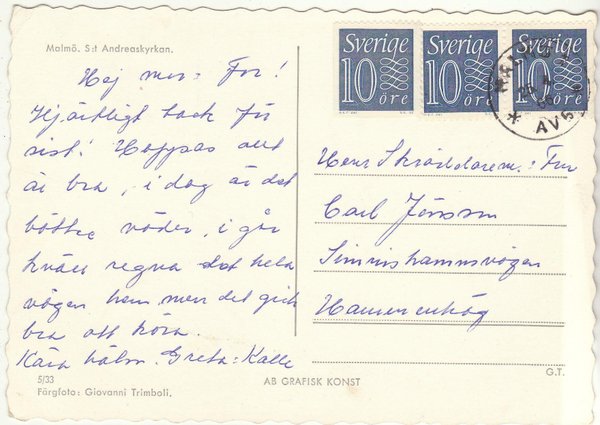 Malmö. S:t Andreaskyrkan.
Hej mor: Far!
Hjärtligt tack för
sist! Hoppas allt
är bra, i dag är det
bättre väder, i går
kväll regna det hela
vägen hem, men det gick
bra att köra.
Kära hälsn. Greta: Kalle
5/33
Färgfoto: Giovanni Trimboli.
AB GRAFISK KONST
G.T.
Sverige
10 öre
Sverige
10 öre
Sverige
10 öre
AVG
Herr Skräddarem.: Fru
Carl Jönsson
Simrishamnsvägen
Hammenhög